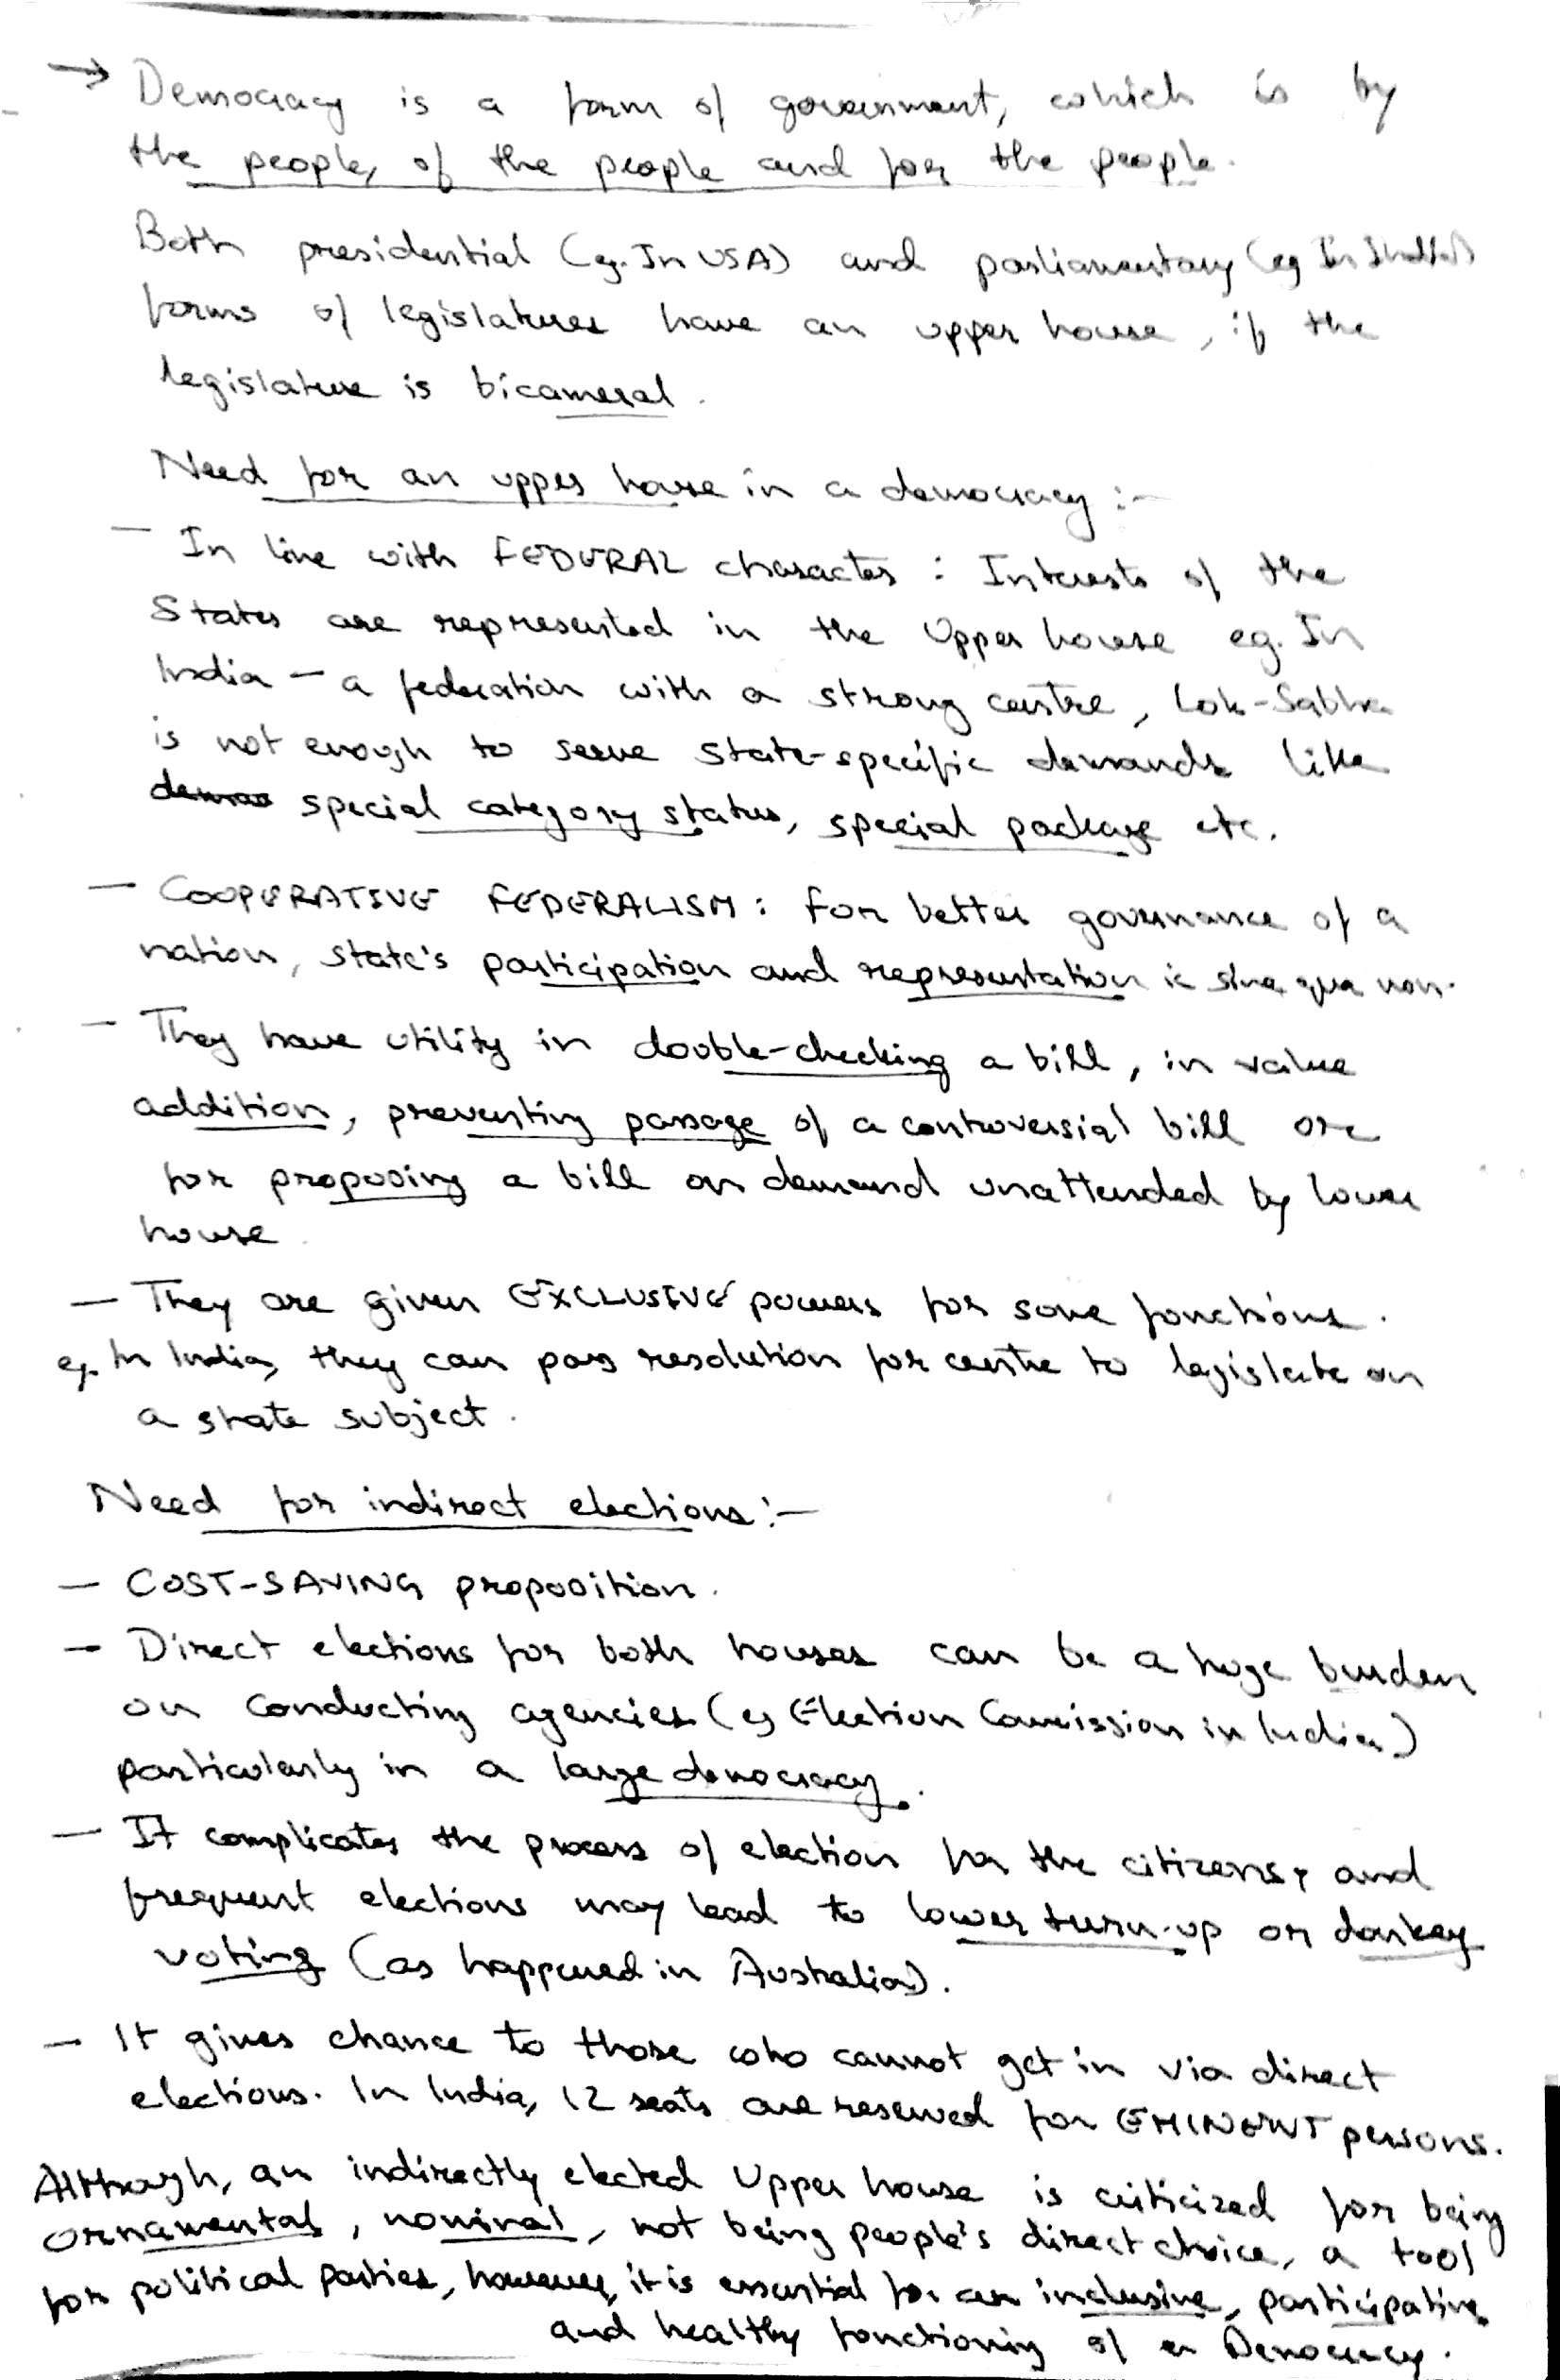 → Democracy is a form of government, which is by
the people, of the people and for the people.
Both presidential (eg. In USA) and parliamentary (eg In
forms of legislatures have an upper house, if the
legislature is bicameral.
Need for an upper house in a democracy :-
- In line with FEDERAL character : Interests of the
States are represented in the Upper house eg. In
India - a federation with a strong centre, Lok-Sabha
is not enough to serve state-specific demands like
special category status, special package etc.
- COOPERATIVE FEDERALISM : For better governance of a
nation, state's participation and representation is sine qua non.
- They have utility in double-checking a bill, in value
addition, preventing passage of a controversial bill or
for proposing a bill on demand unattended by lower
house.
- They are given EXCLUSIVE powers for some functions.
eg. In India, they can pass resolution for centre to legislate on
a state subject.
Need for indirect elections :-
- COST-SAVING proposition.
- Direct elections for both houses can be a huge burden
on conducting agencies (eg Election Commission in India)
particularly in a large democracy.
- It complicates the process of election for the citizens, and
frequent elections may lead to lower turn-up or donkey
voting (as happened in Australia).
- It gives chance to those who cannot get in via direct
elections. In India, 12 seats are reserved for EMINENT persons.
Although, an indirectly elected Upper house is criticized for being
ornamental, nominal, not being people's direct choice, a tool
for political parties, however, it is essential for an inclusive, participative
and healthy functioning of a Democracy.